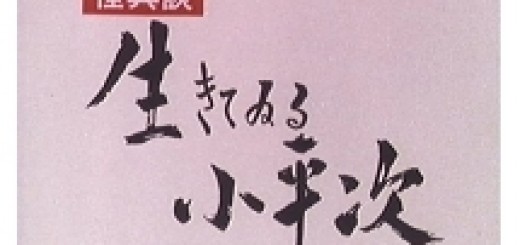 怪異談
生きてゐる
小平次